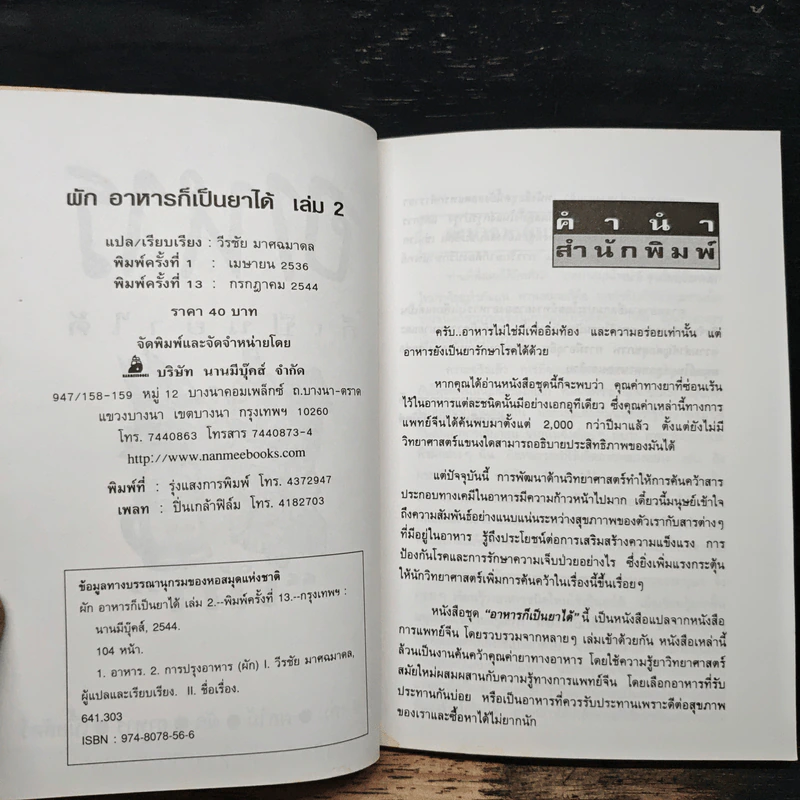 ผัก อาหารก็เป็นยาได้ เล่ม 2
แปล/เรียบเรียง : วีรชัย มาศฉมาดล
พิมพ์ครั้งที่ 1 : เมษายน 2536
พิมพ์ครั้งที่ 13 : กรกฎาคม 2544
ราคา 40 บาท
จัดพิมพ์และจัดจำหน่ายโดย
บริษัท นานมีบุ๊คส์ จำกัด
947/158-159 หมู่ 12 บางนาคอมเพล็กซ์ ถ.บางนา-ตราด
แขวงบางนา เขตบางนา กรุงเทพฯ 10260
โทร. 7440863 โทรสาร 7440873-4
http://www.nanmeebooks.com
พิมพ์ที่ : รุ่งแสงการพิมพ์ โทร. 4372947
เพลท : ปิ่นเกล้าฟิล์ม โทร. 4182703
ข้อมูลทางบรรณานุกรมของหอสมุดแห่งชาติ
ผัก อาหารก็เป็นยาได้ เล่ม 2.--พิมพ์ครั้งที่ 13.--กรุงเทพฯ :
นานมีบุ๊คส์, 2544.
104 หน้า.
1. อาหาร. 2. การปรุงอาหาร (ผัก) I. วีรชัย มาศฉมาดล,
ผู้แปลและเรียบเรียง. II. ชื่อเรื่อง.
641.303
ISBN : 974-8078-56-6
คำนำ
สำนักพิมพ์
ครับ..อาหารไม่ใช่มีเพื่ออิ่มท้อง และความอร่อยเท่านั้น แต่
อาหารยังเป็นยารักษาโรคได้ด้วย
หากคุณได้อ่านหนังสือชุดนี้ก็จะพบว่า คุณค่าทางยาที่ซ่อนเร้น
ไว้ในอาหารแต่ละชนิดนั้นมีอย่างเอกอุทีเดียว ซึ่งคุณค่าเหล่านี้ทางการ
แพทย์จีนได้ค้นพบมาตั้งแต่ 2,000 กว่าปีมาแล้ว ตั้งแต่ยังไม่มี
วิทยาศาสตร์แขนงใดสามารถอธิบายประสิทธิภาพของมันได้
แต่ปัจจุบันนี้ การพัฒนาด้านวิทยาศาสตร์ทำให้การค้นคว้าสาร
ประกอบทางเคมีในอาหารมีความก้าวหน้าไปมาก เดี๋ยวนี้มนุษย์เข้าใจ
ถึงความสัมพันธ์อย่างแนบแน่นระหว่างสุขภาพของตัวเรากับสารต่างๆ
ที่มีอยู่ในอาหาร รู้ถึงประโยชน์ต่อการเสริมสร้างความแข็งแรง การ
ป้องกันโรคและการรักษาความเจ็บป่วยอย่างไร ซึ่งยิ่งเพิ่มแรงกระตุ้น
ให้นักวิทยาศาสตร์เพิ่มการค้นคว้าในเรื่องนี้ขึ้นเรื่อยๆ
หนังสือชุด "อาหารก็เป็นยาได้" นี้ เป็นหนังสือแปลจากหนังสือ
การแพทย์จีน โดยรวบรวมจากหลายๆ เล่มเข้าด้วยกัน หนังสือเหล่านี้
ล้วนเป็นงานค้นคว้าคุณค่ายาทางอาหาร โดยใช้ความรู้ยาวิทยาศาสตร์
สมัยใหม่ผสมผสานกับความรู้ทางการแพทย์จีน โดยเลือกอาหารที่รับ
ประทานกันบ่อย หรือเป็นอาหารที่ควรรับประทานเพราะดีต่อสุขภาพ
ของเราและซื้อหาได้ไม่ยากนัก